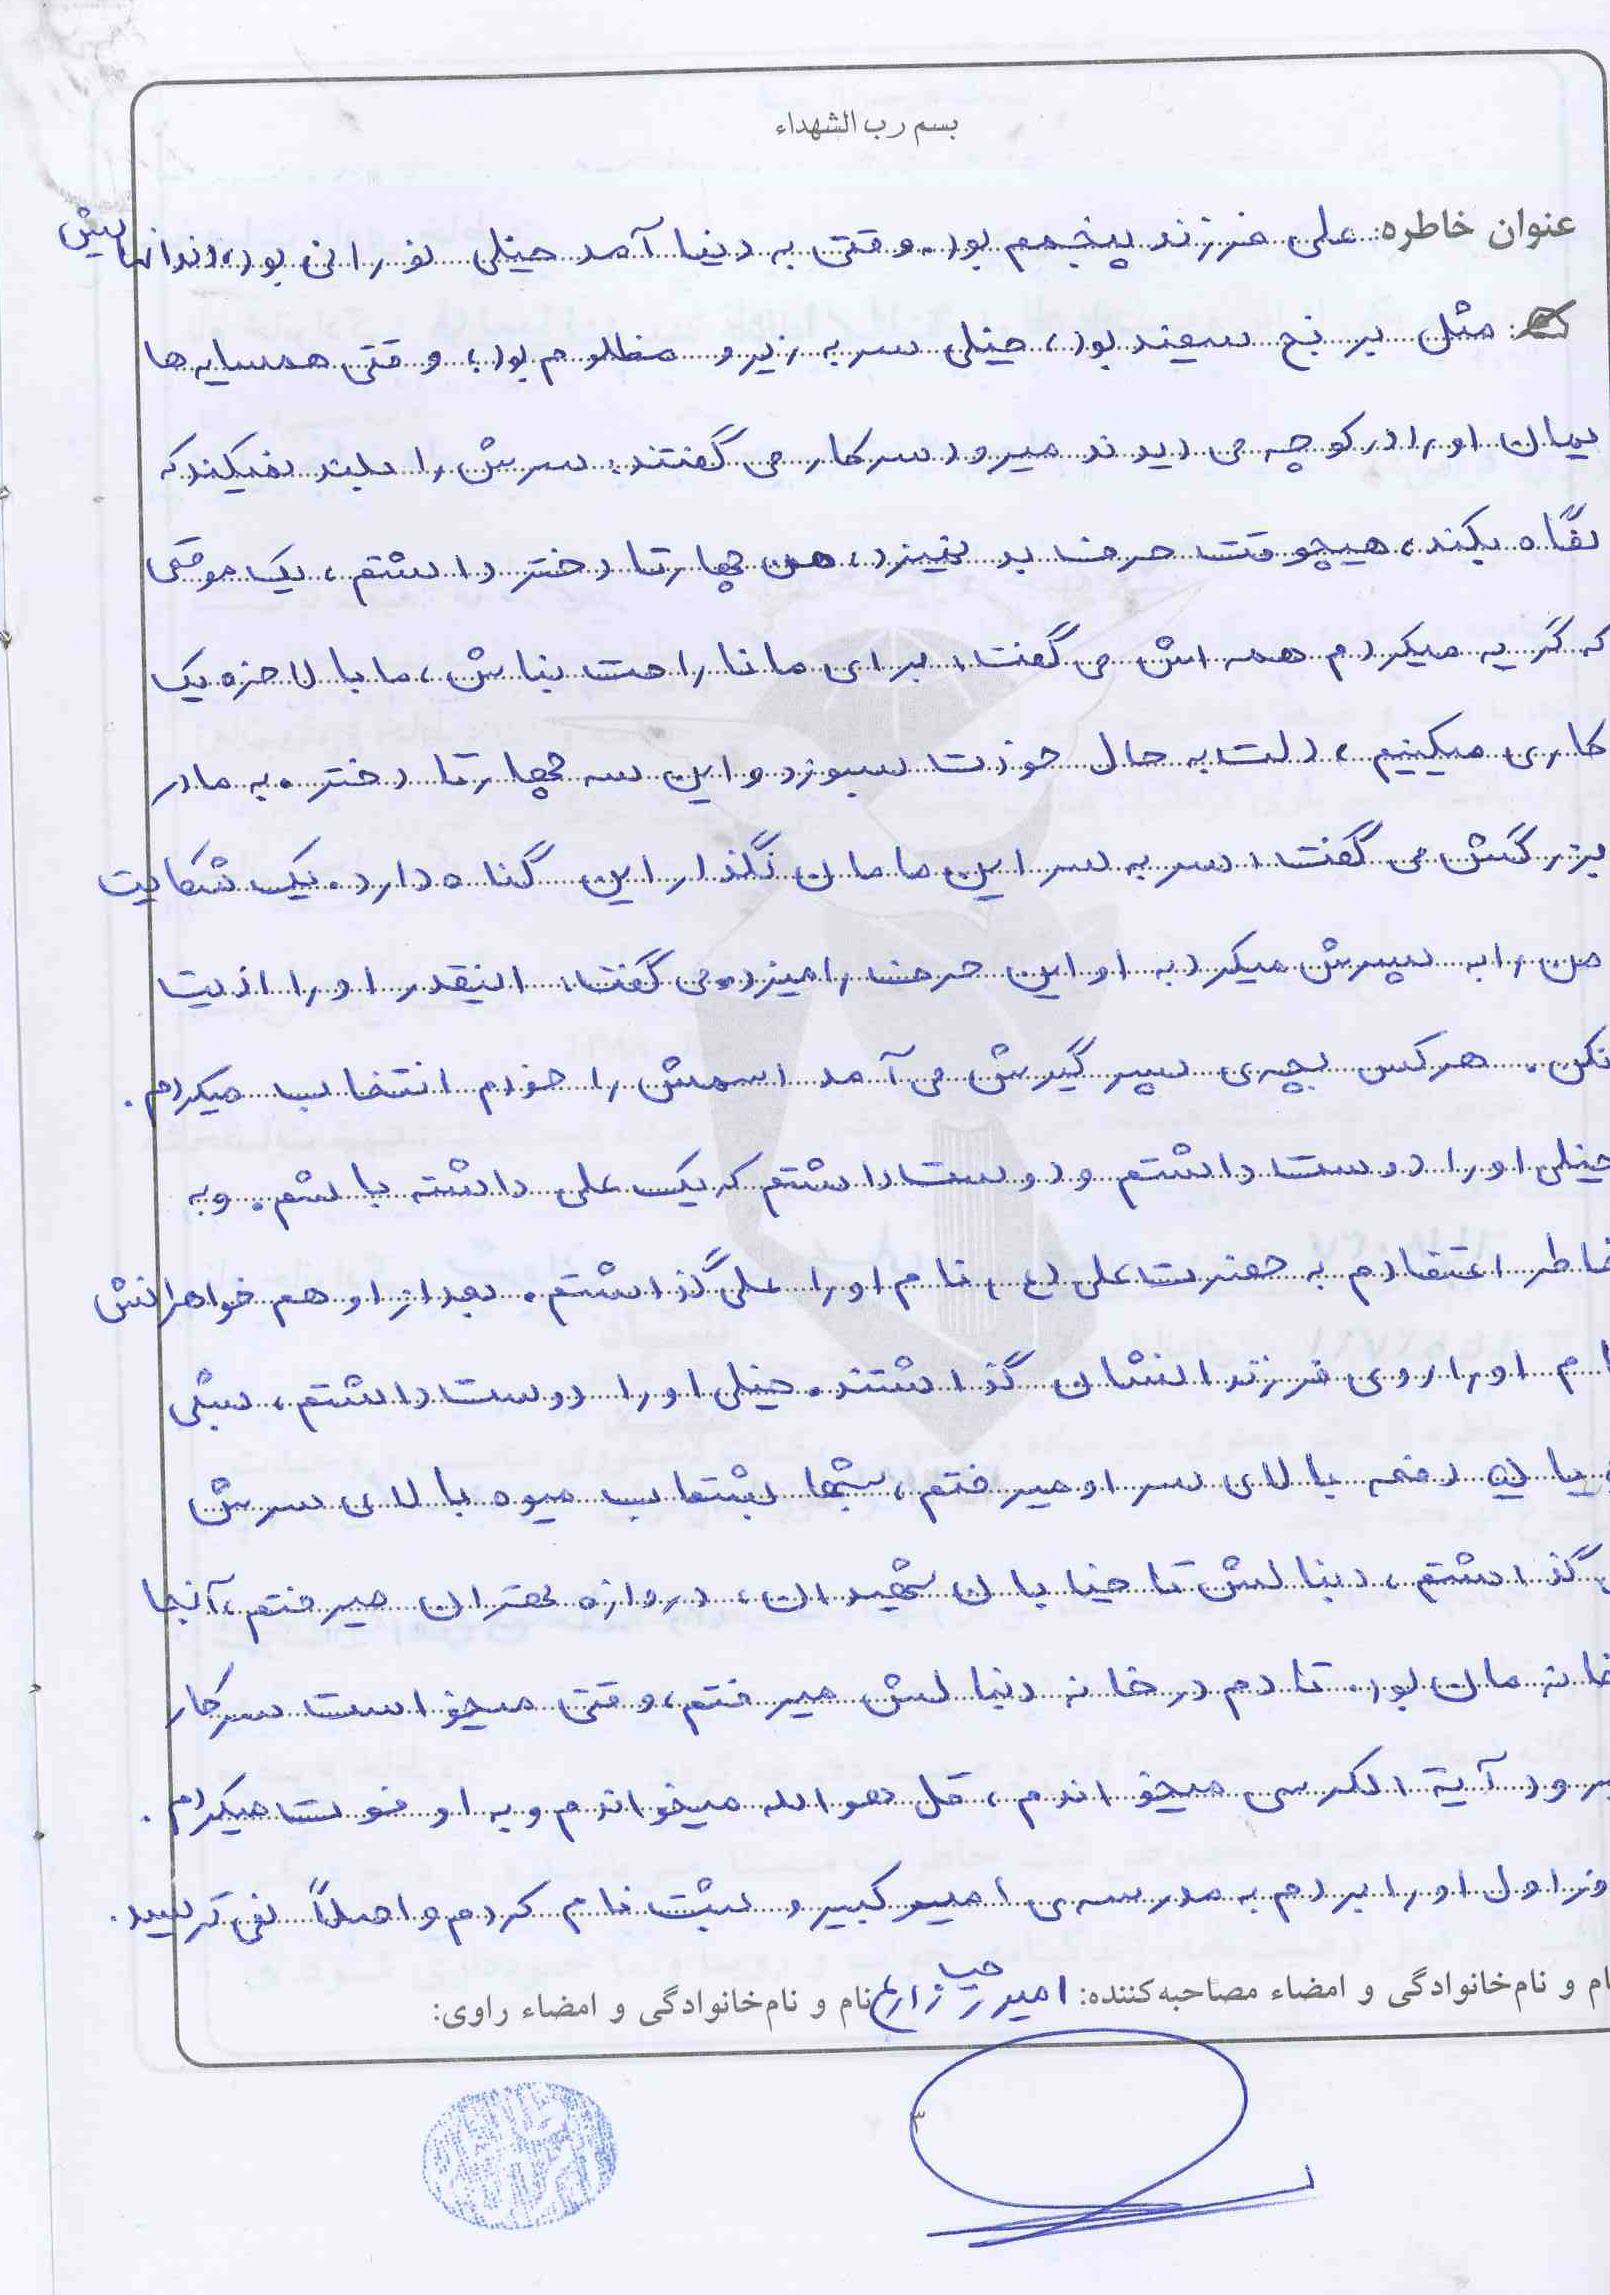 بسم رب الشهداء
عنوان خاطره: علی فرزند پنجمم بود. وقتی به دنیا آمد خیلی نورانی بود، دندانهایش
مثل برنج سفید بود، خیلی سر به زیر و مظلوم بود، وقتی همسایه ها
یمان او را در کوچه می دیدند میرود سرکار می گفتند: سرش را بلند نمیکند که
نگاه بکند، هیچوقت حرف بد نمیزد، من چهارتا دختر داشتم، یک موقعی
که گریه میکردم همه اش می گفت: برای ما ناراحت نباش، ما بالاخره یک
کاری میکنیم، دلت به حال خودت بسوزد و این سه چهارتا دختر. به مادر
بزرگش می گفت: سر به سر این مامان نگذار این گناه دارد. یک شکایت
من را به پسرش میکرد به او این حرف را میزد. می گفت: انیقدر او را اذیت
نکن. هرکس بچه ی پسر گیرش می آمد اسمش را خودم انتخاب میکردم.
خیلی او را دوست داشتم و دوست داشتم که یک علی داشته باشم. و به
خاطر اعتقادم به حضرت علی (ع) نام او را علی گذاشتم. بعد از او هم خواهرانش
نام او را روی فرزندانشان گذاشتند. خیلی او را دوست داشتم، شبی
پانزده دفعه بالای سر او میرفتم، شبها بشقاب میوه بالای سرش
می گذاشتم، دنبالش تا خیابان شهیدان، دروازه تهران میرفتم، آنجا
خانه مان بود. تا دم در خانه دنبالش میرفتم، وقتی میخواست سرکار
برود آیة الکرسی میخواندم، قل هو الله میخواندم و به او فوت میکردم.
روز اول او را بردم به مدرسه ی امیرکبیر و ثبت نام کردم و اصلاً نمی ترسید.
نام و نام‌خانوادگی و امضاء مصاحبه‌کننده: امیر نام و نام‌خانوادگی و امضاء راوی:
۳